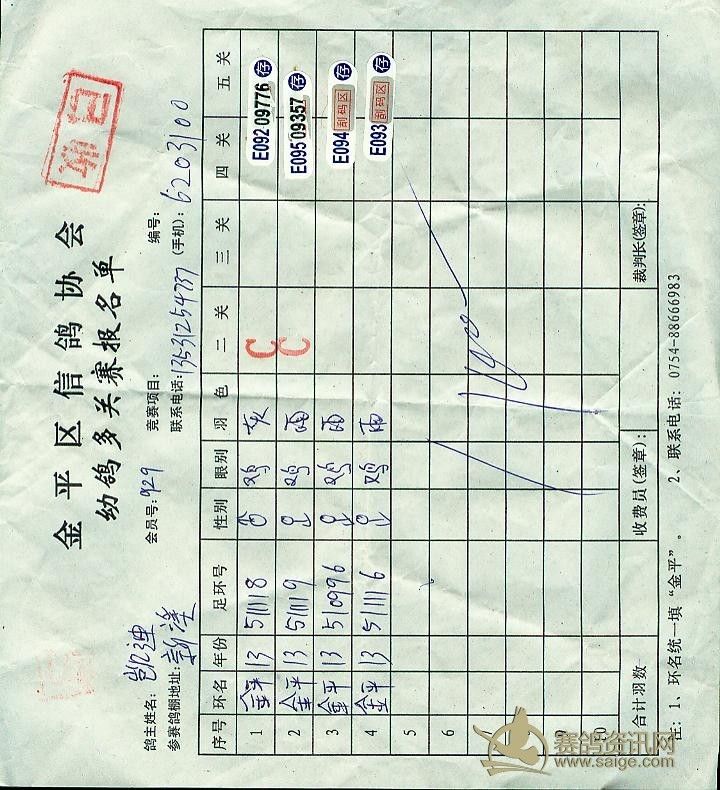 金平区信鸽协会
幼鸽多关赛报名单
会员号: 929 竞赛项目: 编号:
鸽主姓名: 凯迪
参赛鸽棚地址: 联系电话: 13531254737 (手机): 6203100
序号 环名 年份 足环号 性别 眼别 羽色 二关 三关 四关 五关
1 金平 13 511118 鸡 灰 C E092 09776 存
2 金平 13 511119 鸡 雨 C E095 09357 存
3 金平 13 510996 鸡 雨 E094 刮码区 存
4 金平 13 511116 鸡 雨 E093 刮码区 存
5
6
9
10
合计羽数 收费员(签章): 裁判长(签章):
注: 1、环名统一填“金平”。 2、联系电话: 0754-88666983
赛鸽资讯网
www.saige.com